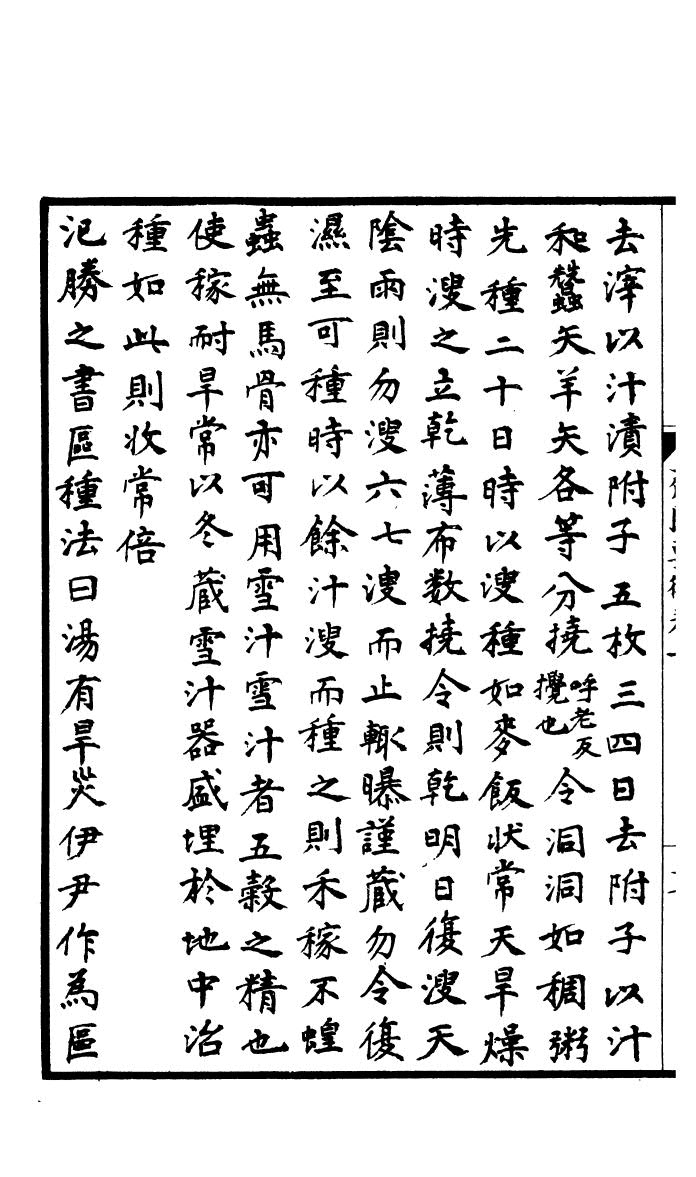 去滓以汁漬附子五枚三四日去附子以汁
和蠶矢羊矢各等分撓呼老反攪也令洞洞如稠粥
先種二十日時以溲種如麥飯狀常天旱燥
時溲之立乾薄布數撓令則乾明日復溲天
陰雨則勿溲六七溲而止輙曝謹蔵勿令復
濕至可種時以餘汁溲而種之則禾稼不蝗
蟲無馬骨亦可用雪汁雪汁者五穀之精也
使稼耐旱常以冬蔵雪汁器盛埋於地中治
種如此則收常倍
氾勝之書區種法曰湯有旱災伊尹作為區